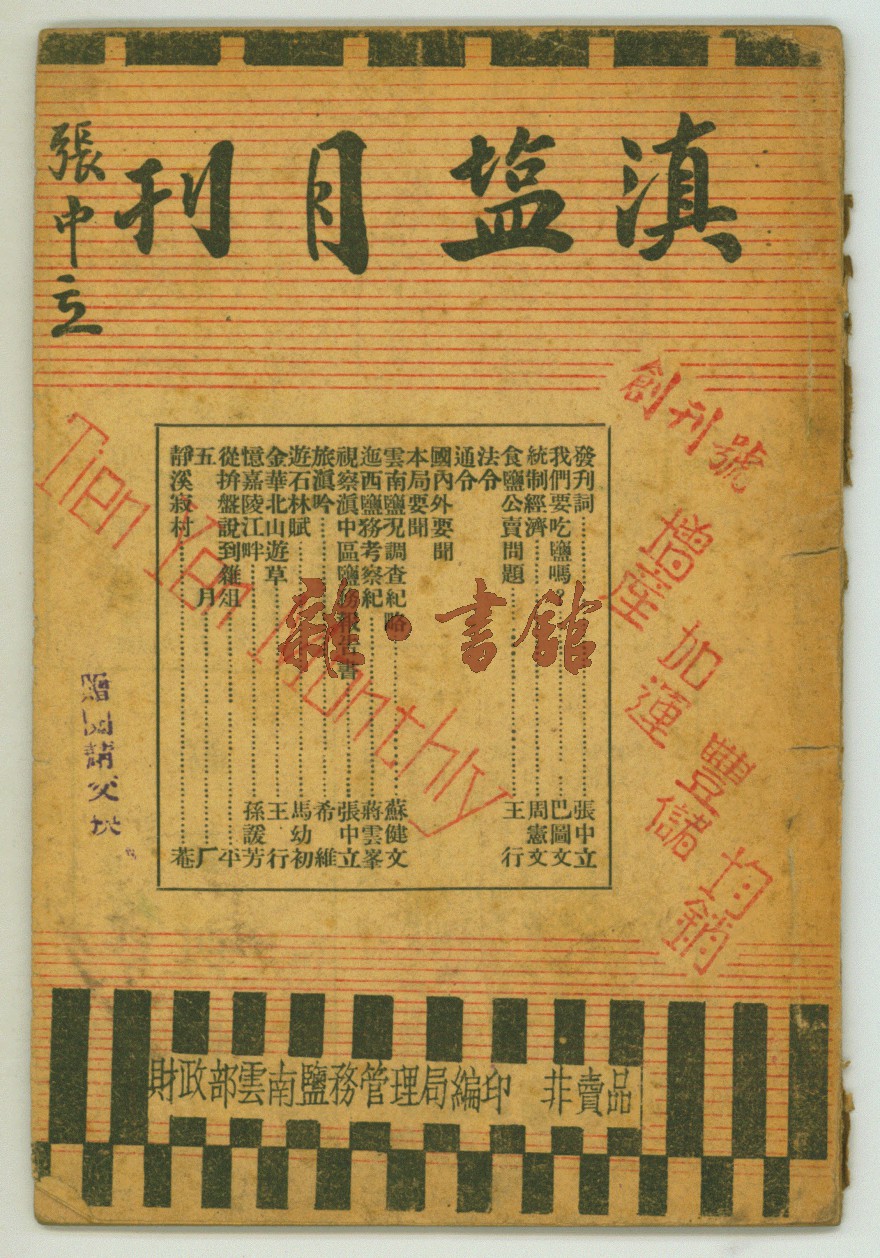 滇盐月刊
張中立
創刊號
增產 加運 豐儲 均銷
Tien Yen Monthly
發刊詞 張中立
我們要吃鹽嗎? 巴圖文
統制經濟 周憲文
食鹽公賣問題 王行
法令
通令
國內外要聞
本局要聞
雲南鹽況調查紀略 蘇健文
迤西鹽務考察紀 蔣雲峯
視察滇中區鹽務報告書 張中立
旅滇吟 希維
遊石林賦 馬幼初
金華北山遊草 王行
憶嘉陵江畔 孫諼芳
從拚盤說到雜俎 平
五月 厂
靜溪寂村 菴
雜·書館
請交
財政部雲南鹽務管理局編印 非賣品